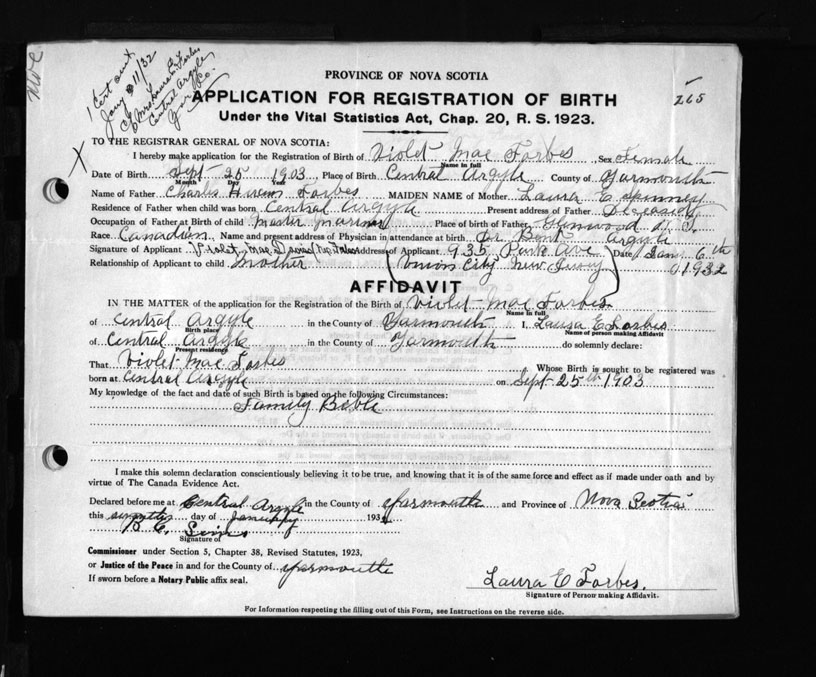 1 Cert out
Jany 11/32
Mrs Laura E Forbes
Central Argyle
Yar. Co.
PROVINCE OF NOVA SCOTIA
APPLICATION FOR REGISTRATION OF BIRTH
265
Under the Vital Statistics Act, Chap. 20, R. S. 1923.
TO THE REGISTRAR GENERAL OF NOVA SCOTIA:
X
I hereby make application for the Registration of Birth of Violet Mae Forbes Sex Female
Name in full
Date of Birth Sept 25 1903 Place of Birth Central Argyle County of Yarmouth
Month Day Year
Name of Father Charles Forbes MAIDEN NAME of Mother Laura E Spinney
Residence of Father when child was born Central Argyle Present address of Father Deceased
Occupation of Father at Birth of child Master Mariner Place of birth of Father Glenwood N. S.
Race Canadian Name and present address of Physician in attendance at birth Dr Argyle
Signature of Applicant Violet Mae Address of Applicant 935 Ave Date Jany 6th
Relationship of Applicant to child Mother (Union City New Jersey) 1932
AFFIDAVIT
IN THE MATTER of the application for the Registration of the Birth of Violet Mae Forbes
Name in full
of Central Argyle in the County of Yarmouth I, Laura E Forbes
Birth place Name of person making Affidavit
of Central Argyle in the County of Yarmouth do solemnly declare:
Present residence
That Violet Mae Forbes Whose Birth is sought to be registered was
born at Central Argyle on Sept 25th 1903
My knowledge of the fact and date of such Birth is based on the following Circumstances:
Family Bible
I make this solemn declaration conscientiously believing it to be true, and knowing that it is of the same force and effect as if made under oath and by
virtue of The Canada Evidence Act.
Declared before me at Central Argyle in the County of Yarmouth and Province of Nova Scotia
this day of January 193
Signature of
Commissioner under Section 5, Chapter 38, Revised Statutes, 1923,
or Justice of the Peace in and for the County of Yarmouth
If sworn before a Notary Public affix seal.
Laura E Forbes.
Signature of Person making Affidavit.
For Information respecting the filling out of this Form, see Instructions on the reverse side.